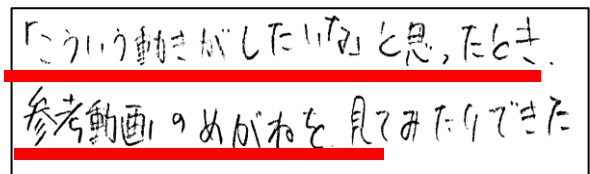 「こういう動きがしたいな」と思ったとき、
参考動画のめがねを見てみたりできた